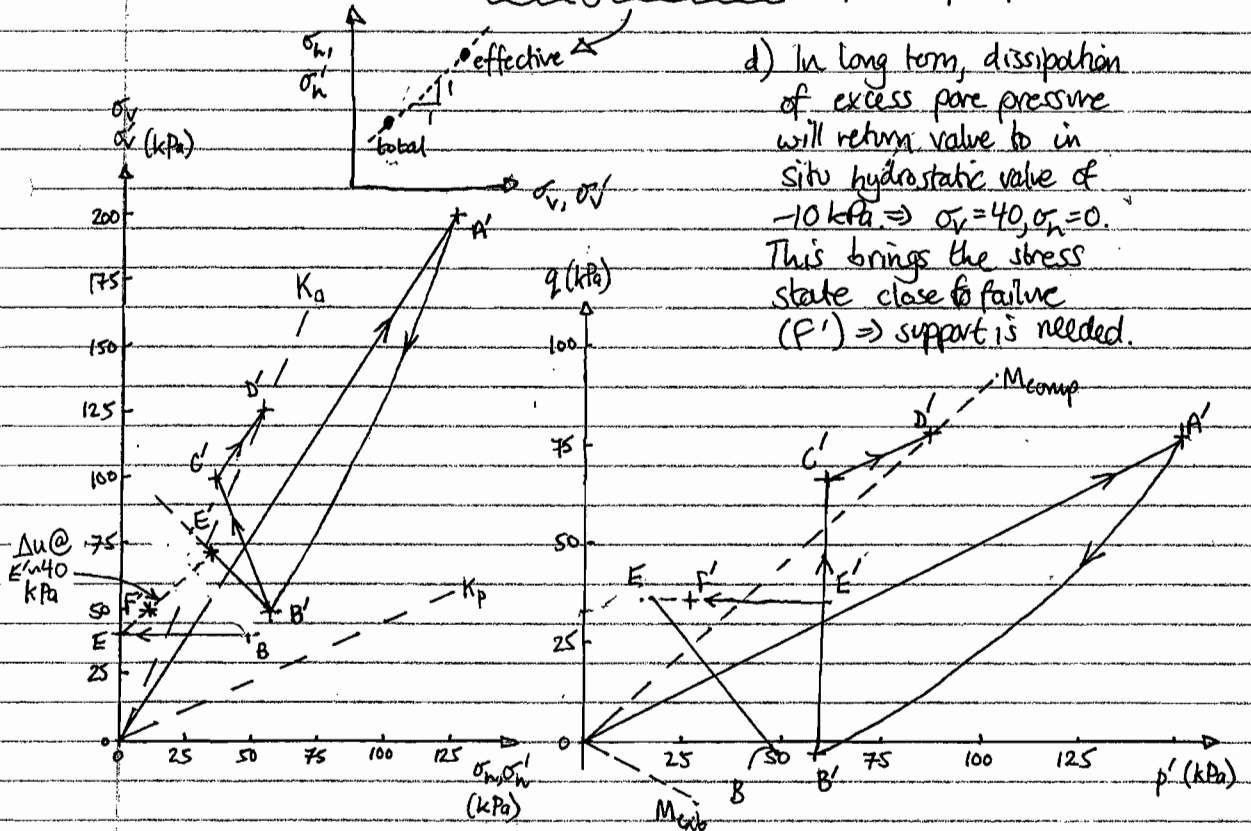 σh,
σ'h
effective
1
1
total
σv, σ'v
d) In long term, dissipation
of excess pore pressure
will return value to in
situ hydrostatic value of
-10 kPa. ⇒ σv = 40, σh = 0.
This brings the stress
state close to failure
(F') ⇒ support is needed.
σv
σ'v (kPa)
200
175
150
125
100
75
50
25
0
A'
Ka
D'
C'
E'
Δu @
E'~40
kPa
F'
E
B'
B
Kp
0
25
50
75
100
125
σh, σ'h
(kPa)
q (kPa)
100
75
50
25
0
Mcomp
D'
A'
C'
E
F'
E'
25
50
75
100
125
p' (kPa)
B
B'